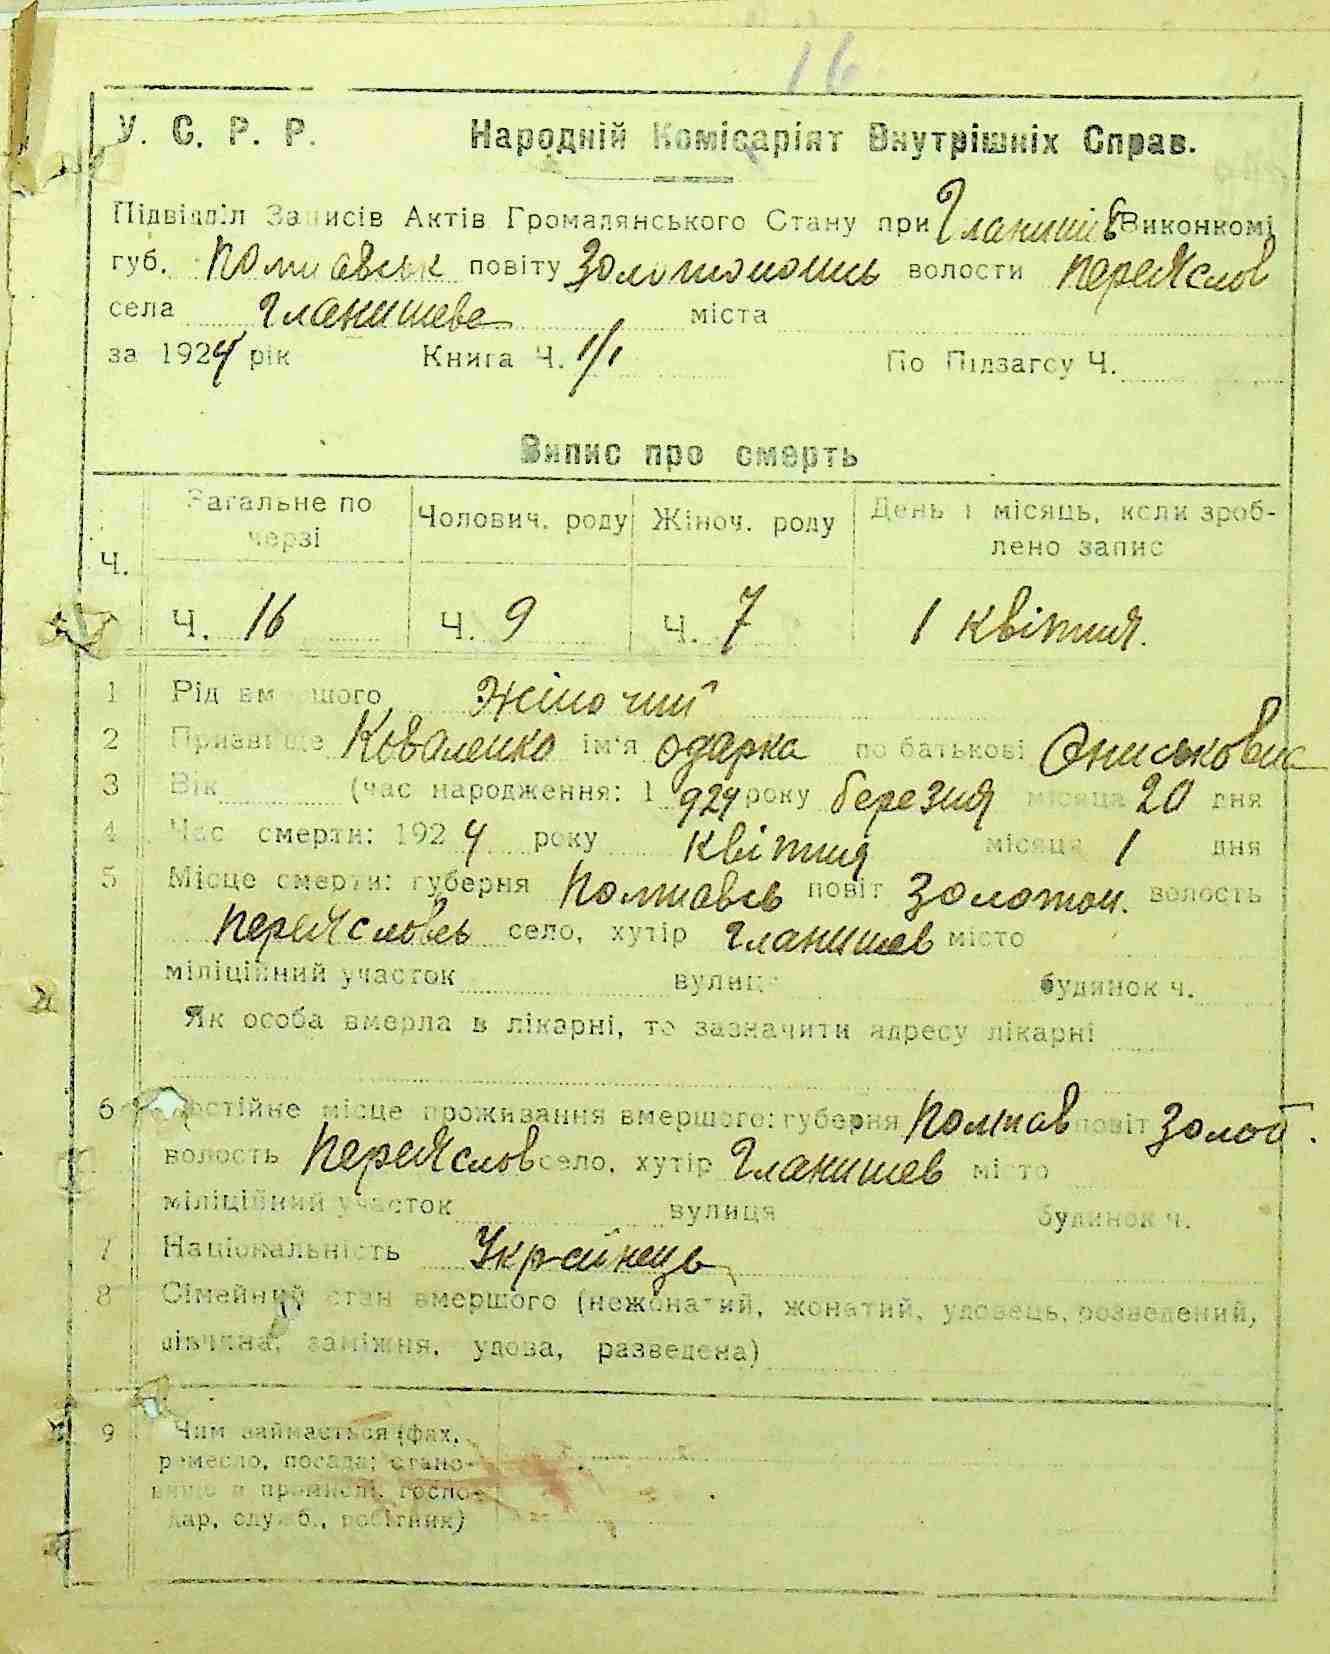 16
У. С. Р. Р. Народній Комісаріят Внутрішніх Справ.
Підвідділ Записів Актів Громадянського Стану при Гланишів Виконкомі
губ. Полтавськ повіту Золотонош волости Переяслов
села Гланишева міста
за 1924 рік Книга Ч. 1/1 По Підзагсу Ч.
Випис про смерть
Ч. Загальне по черзі Чолович. роду Жіноч. роду День і місяць, коли зроблено запис
Ч. 16 Ч. 9 Ч. 7 1 квітня.
1 Рід вмершого Жіночий
2 Призвище Коваленко ім'я Одарка по батькові
3 Вік (час народження: 1924 року березня місяця 20 дня
4 Час смерти: 1924 року квітня місяця 1 дня
5 Місце смерти: губерня Полтавсь повіт Золотон. волость
Переясловсь село, хутір Гланишев місто
міліційний участок вулиця будинок ч.
Як особа вмерла в лікарні, то зазначити адресу лікарні
6 Постійне місце проживання вмершого: губерня Полтав повіт Золот.
волость Переяслов село, хутір Гланишев місто
міліційний участок вулиця будинок ч.
7 Національність Українець
8 Сімейний стан вмершого (нежонатий, жонатий, удовець, розведений,
дівчина, заміжня, удова, разведена)
9 Чим займається (фах,
ремесло, посада; стано-
вище в промислі, госпо-
дар, служб., робітник)